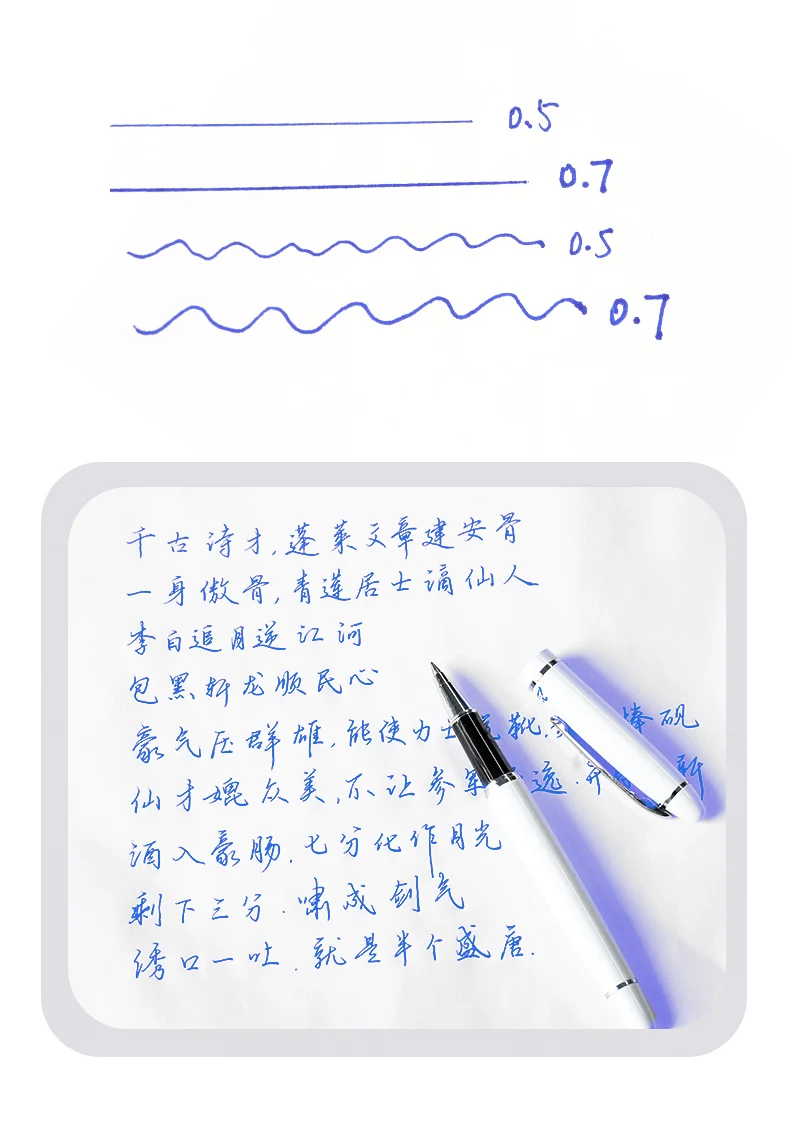 0.5
0.7
0.5
0.7
千古诗才,蓬莱文章建安骨
一身傲骨,青莲居士谪仙人
李白追月逆江河
包黑轩龙顺民心
豪气压群雄,能使力士靴,捧砚
仙才媲众美,不让参军逸.开新
酒入豪肠.七分化作月光
剩下三分.啸成剑气
绣口一吐.就是半个盛唐.